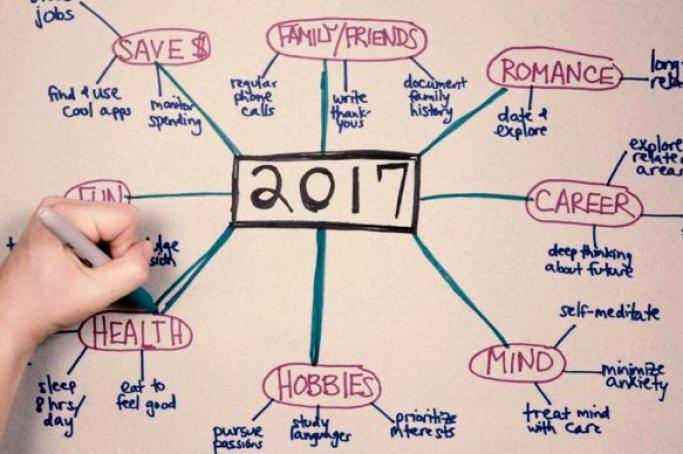 jobs
SAVE $
find & use
cool apps
monitor
spending
FAMILY/FRIENDS
regular
phone
calls
write
thank-
yous
document
family
history
ROMANCE
date &
explore
long
2017
FUN
CAREER
explore
areas
deep thinking
about future
HEALTH
sleep
8 hrs/
day
eat to
feel good
HOBBIES
pursue
passions
study
languages
prioritize
interests
MIND
self-meditate
minimize
anxiety
treat mind
with care